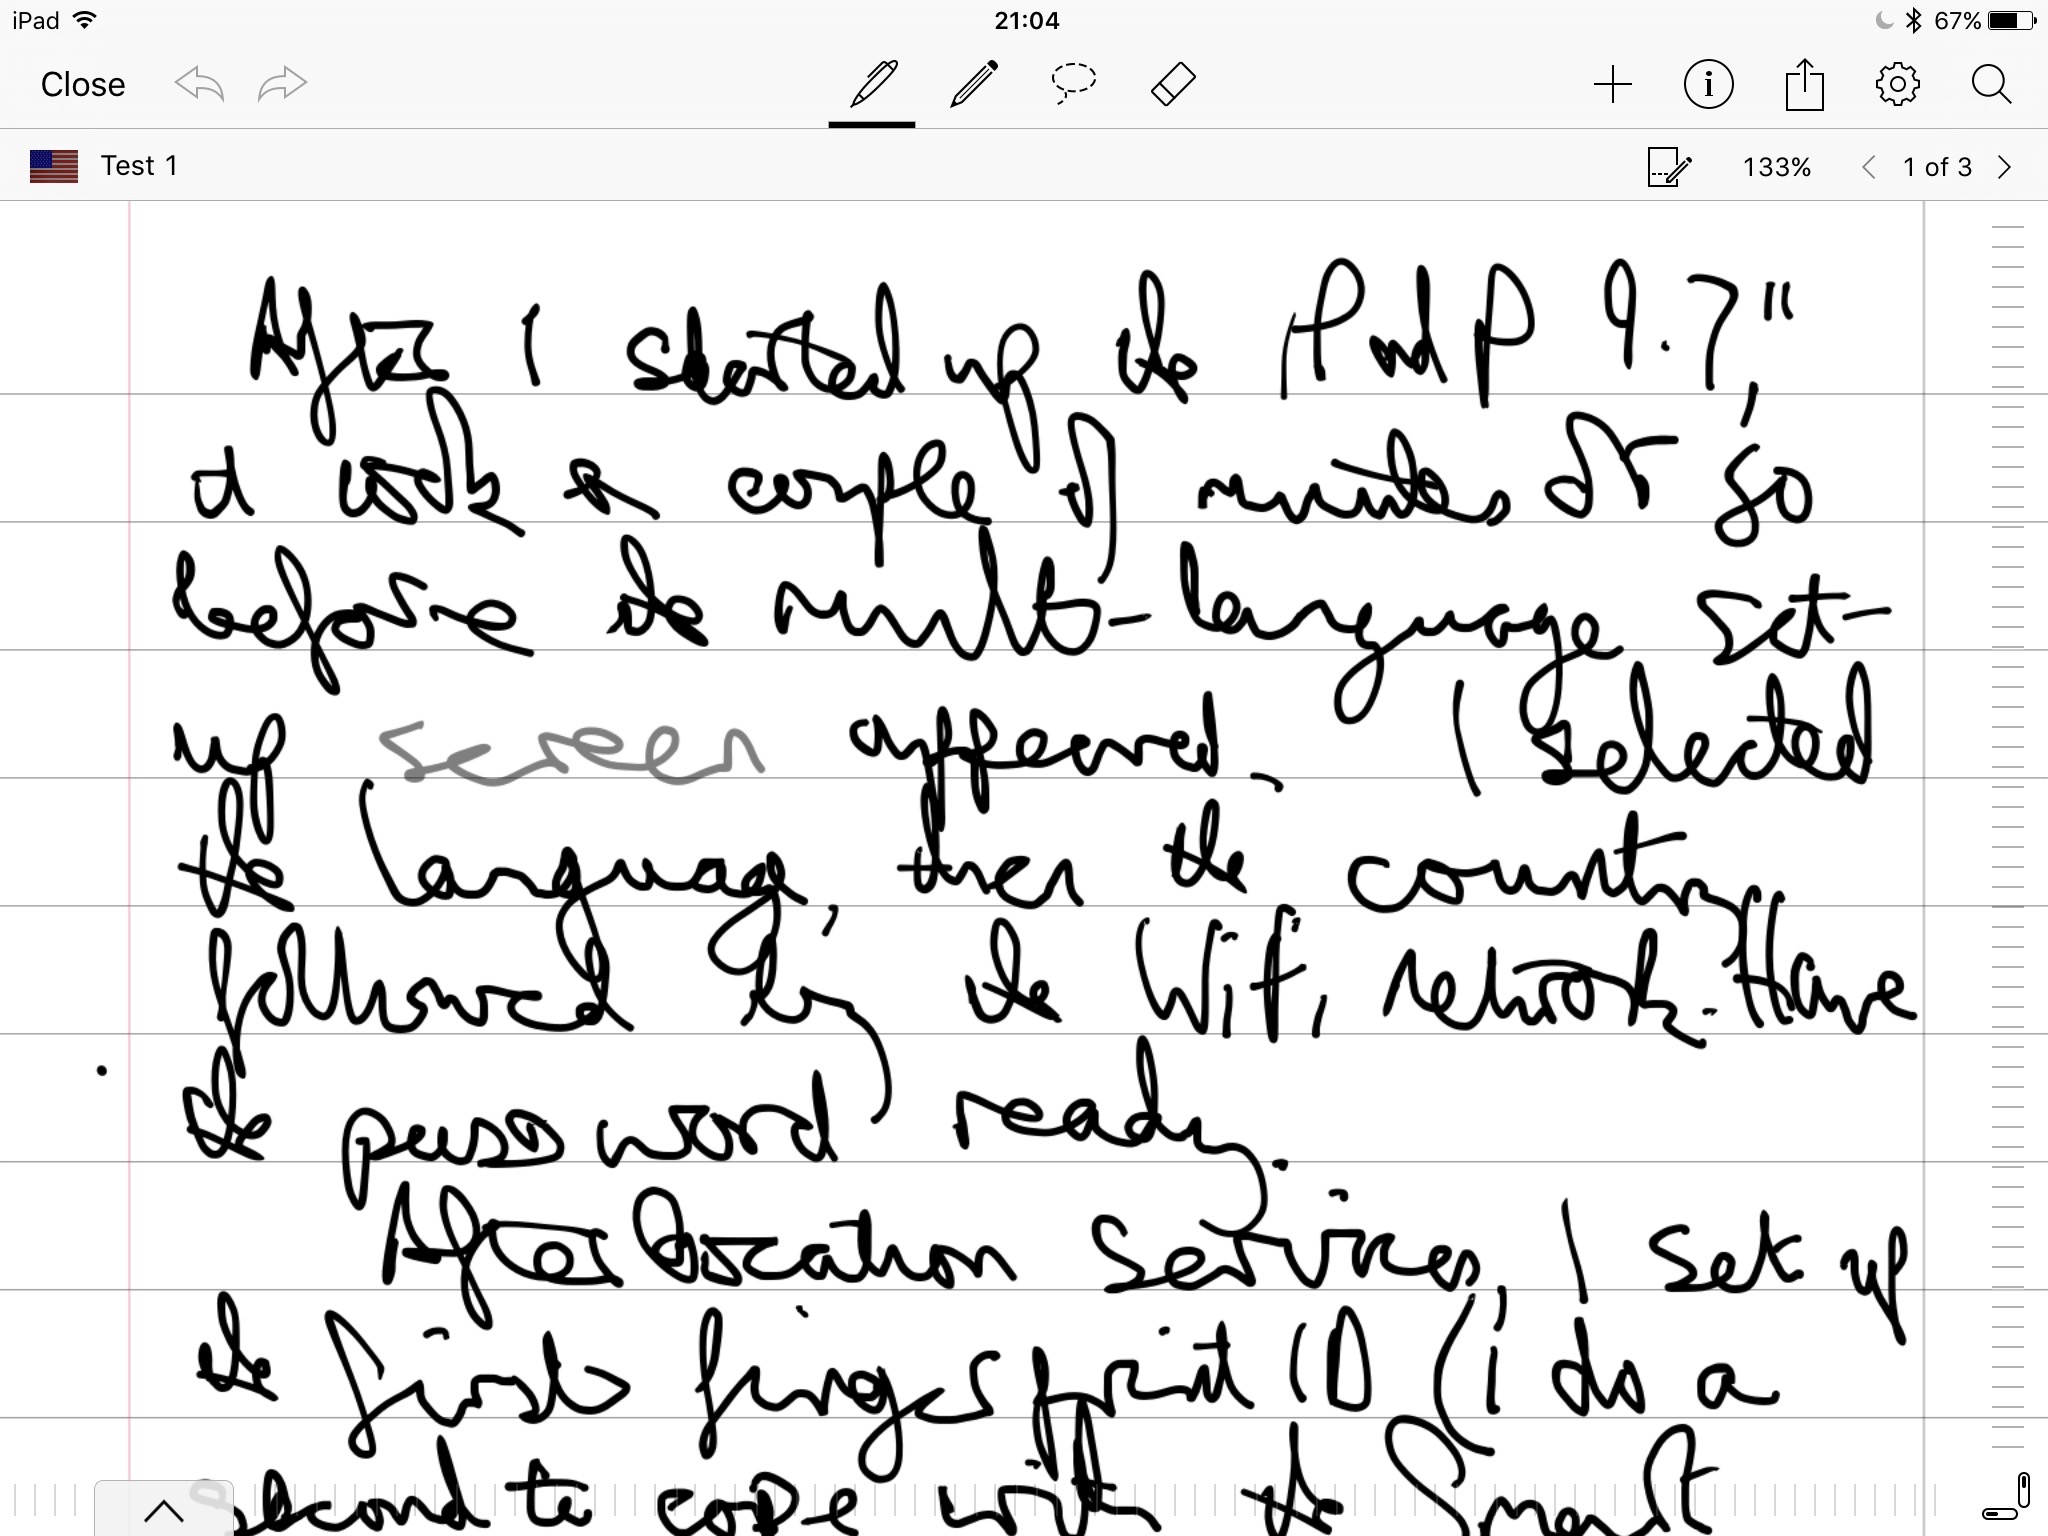 iPad 21:04 67%
Close
Test 1 133% 1 of 3
After I started up the iPad P 9.7",
it took a couple of minutes or so
before the multi-language set-
up screen appeared. I selected
the language, then the country
followed by the Wifi network. Have
the password ready.
After location services, I set up
the first fingerprint ID (i do a
second to cope with the Smart